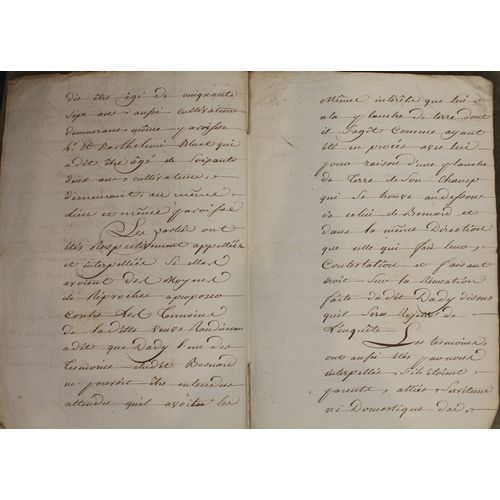 dit être âgé de cinquante
Sept ans, aussi cultivateur
demeurant même paroisse
St Barthelemi qui
a dit être âgé de Soixante
deux ans, cultivateur,
demeurant au même
lieu et même paroisse
Les parties ont
étés respectivement appellées
et interpellées Si elles
avoient des Moyens
de Reproches a proposer
Contre Les temoins
de la ditte veuve
a dit que Dady l'un des
temoins dudit Besnard
ne pouvoit être entendu
attendu qu'il avoit les
Même interêts que lui
a la planche de terre dont
il S'agit Comme ayant
été en procès avec lui
pour raison d'une planche
de terre de Son Champ
qui Se trouve au dessous
de celui de Besnard et
dans la même Direction
que celle qui fait leur
Contestation et faisant
droit Sur la Recusation
faite dudit Dady disons
qu'il Sera Rejetté de
L'enquête
Les temoins
ont aussi étés par nous
interpellés, S'ils étoient
parents, alliés, Serviteurs
ni Domestiques des